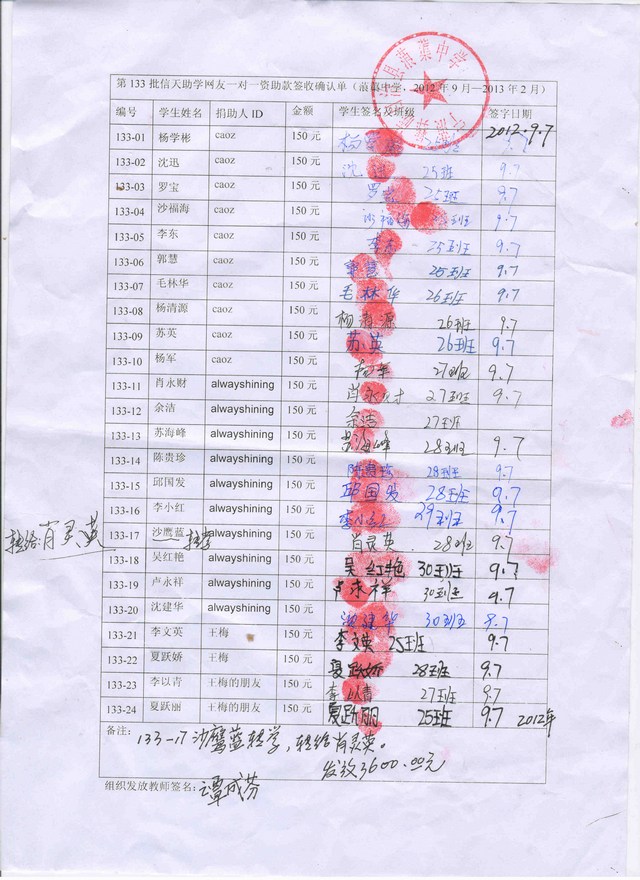 第 133 批信天助学网友一对一资助款签收确认单（蕻蕻中学，2012 年 9 月—2013 年 2 月）
编号 学生姓名 捐助人 ID 金额 学生签名及班级 签字日期
133-01 杨学彬 caoz 150 元 杨学彬 25班 2012.9.7
133-02 沈迅 caoz 150 元 沈迅 25班 9.7
133-03 罗宝 caoz 150 元 罗宝 25班 9.7
133-04 沙福海 caoz 150 元 沙福海 25班 9.7
133-05 李东 caoz 150 元 李东 25班 9.7
133-06 郭慧 caoz 150 元 郭慧 25班 9.7
133-07 毛林华 caoz 150 元 毛林华 26班 9.7
133-08 杨清源 caoz 150 元 杨清源 26班 9.7
133-09 苏英 caoz 150 元 苏英 26班 9.7
133-10 杨军 caoz 150 元 杨军 27班 9.7
133-11 肖永财 alwayshining 150 元 肖永才 27班 9.7
133-12 余洁 alwayshining 150 元 余洁 27班
133-13 苏海峰 alwayshining 150 元 苏海峰 28班 9.7
133-14 陈贵珍 alwayshining 150 元 陈贵珍 28班 9.7
133-15 邱国发 alwayshining 150 元 邱国发 28班 9.7
133-16 李小红 alwayshining 150 元 李小红 29班 9.7
转给:肖灵英 133-17 沙鹰蓝 转学 alwayshining 150 元 肖灵英 28班 9.7
133-18 吴红艳 alwayshining 150 元 吴红艳 30班 9.7
133-19 卢永祥 alwayshining 150 元 卢永祥 30班 9.7
133-20 沈建华 alwayshining 150 元 沈建华 30班 9.7
133-21 李文英 王梅 150 元 李文英 25班 9.7
133-22 夏跃娇 王梅 150 元 夏跃娇 28班 9.7
133-23 李以青 王梅的朋友 150 元 李以青 27班 9.7
133-24 夏跃丽 王梅的朋友 150 元 夏跃丽 25班 9.7 2012年
备注： 133-17沙鹰蓝转学，转给肖灵英。
发放3600.00元
组织发放教师签名：谭成芬